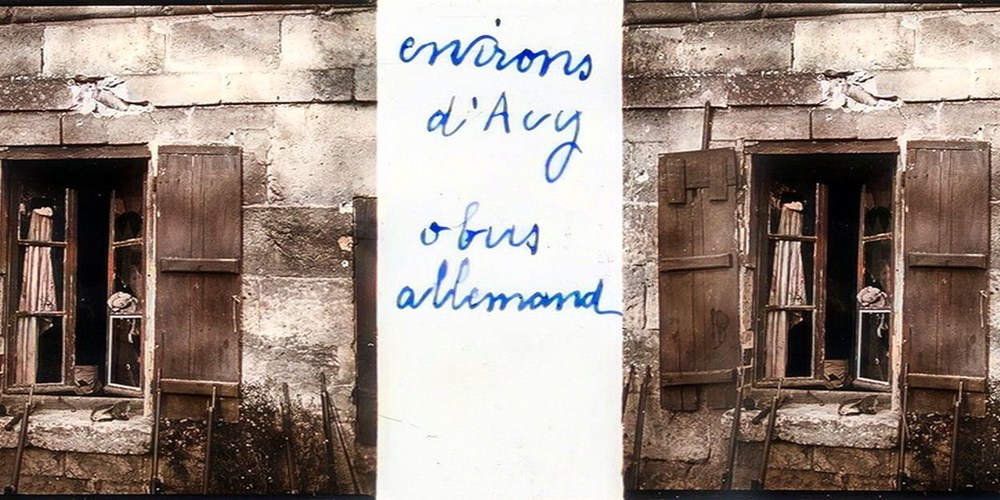 environs
d'Avy
obus
allemand